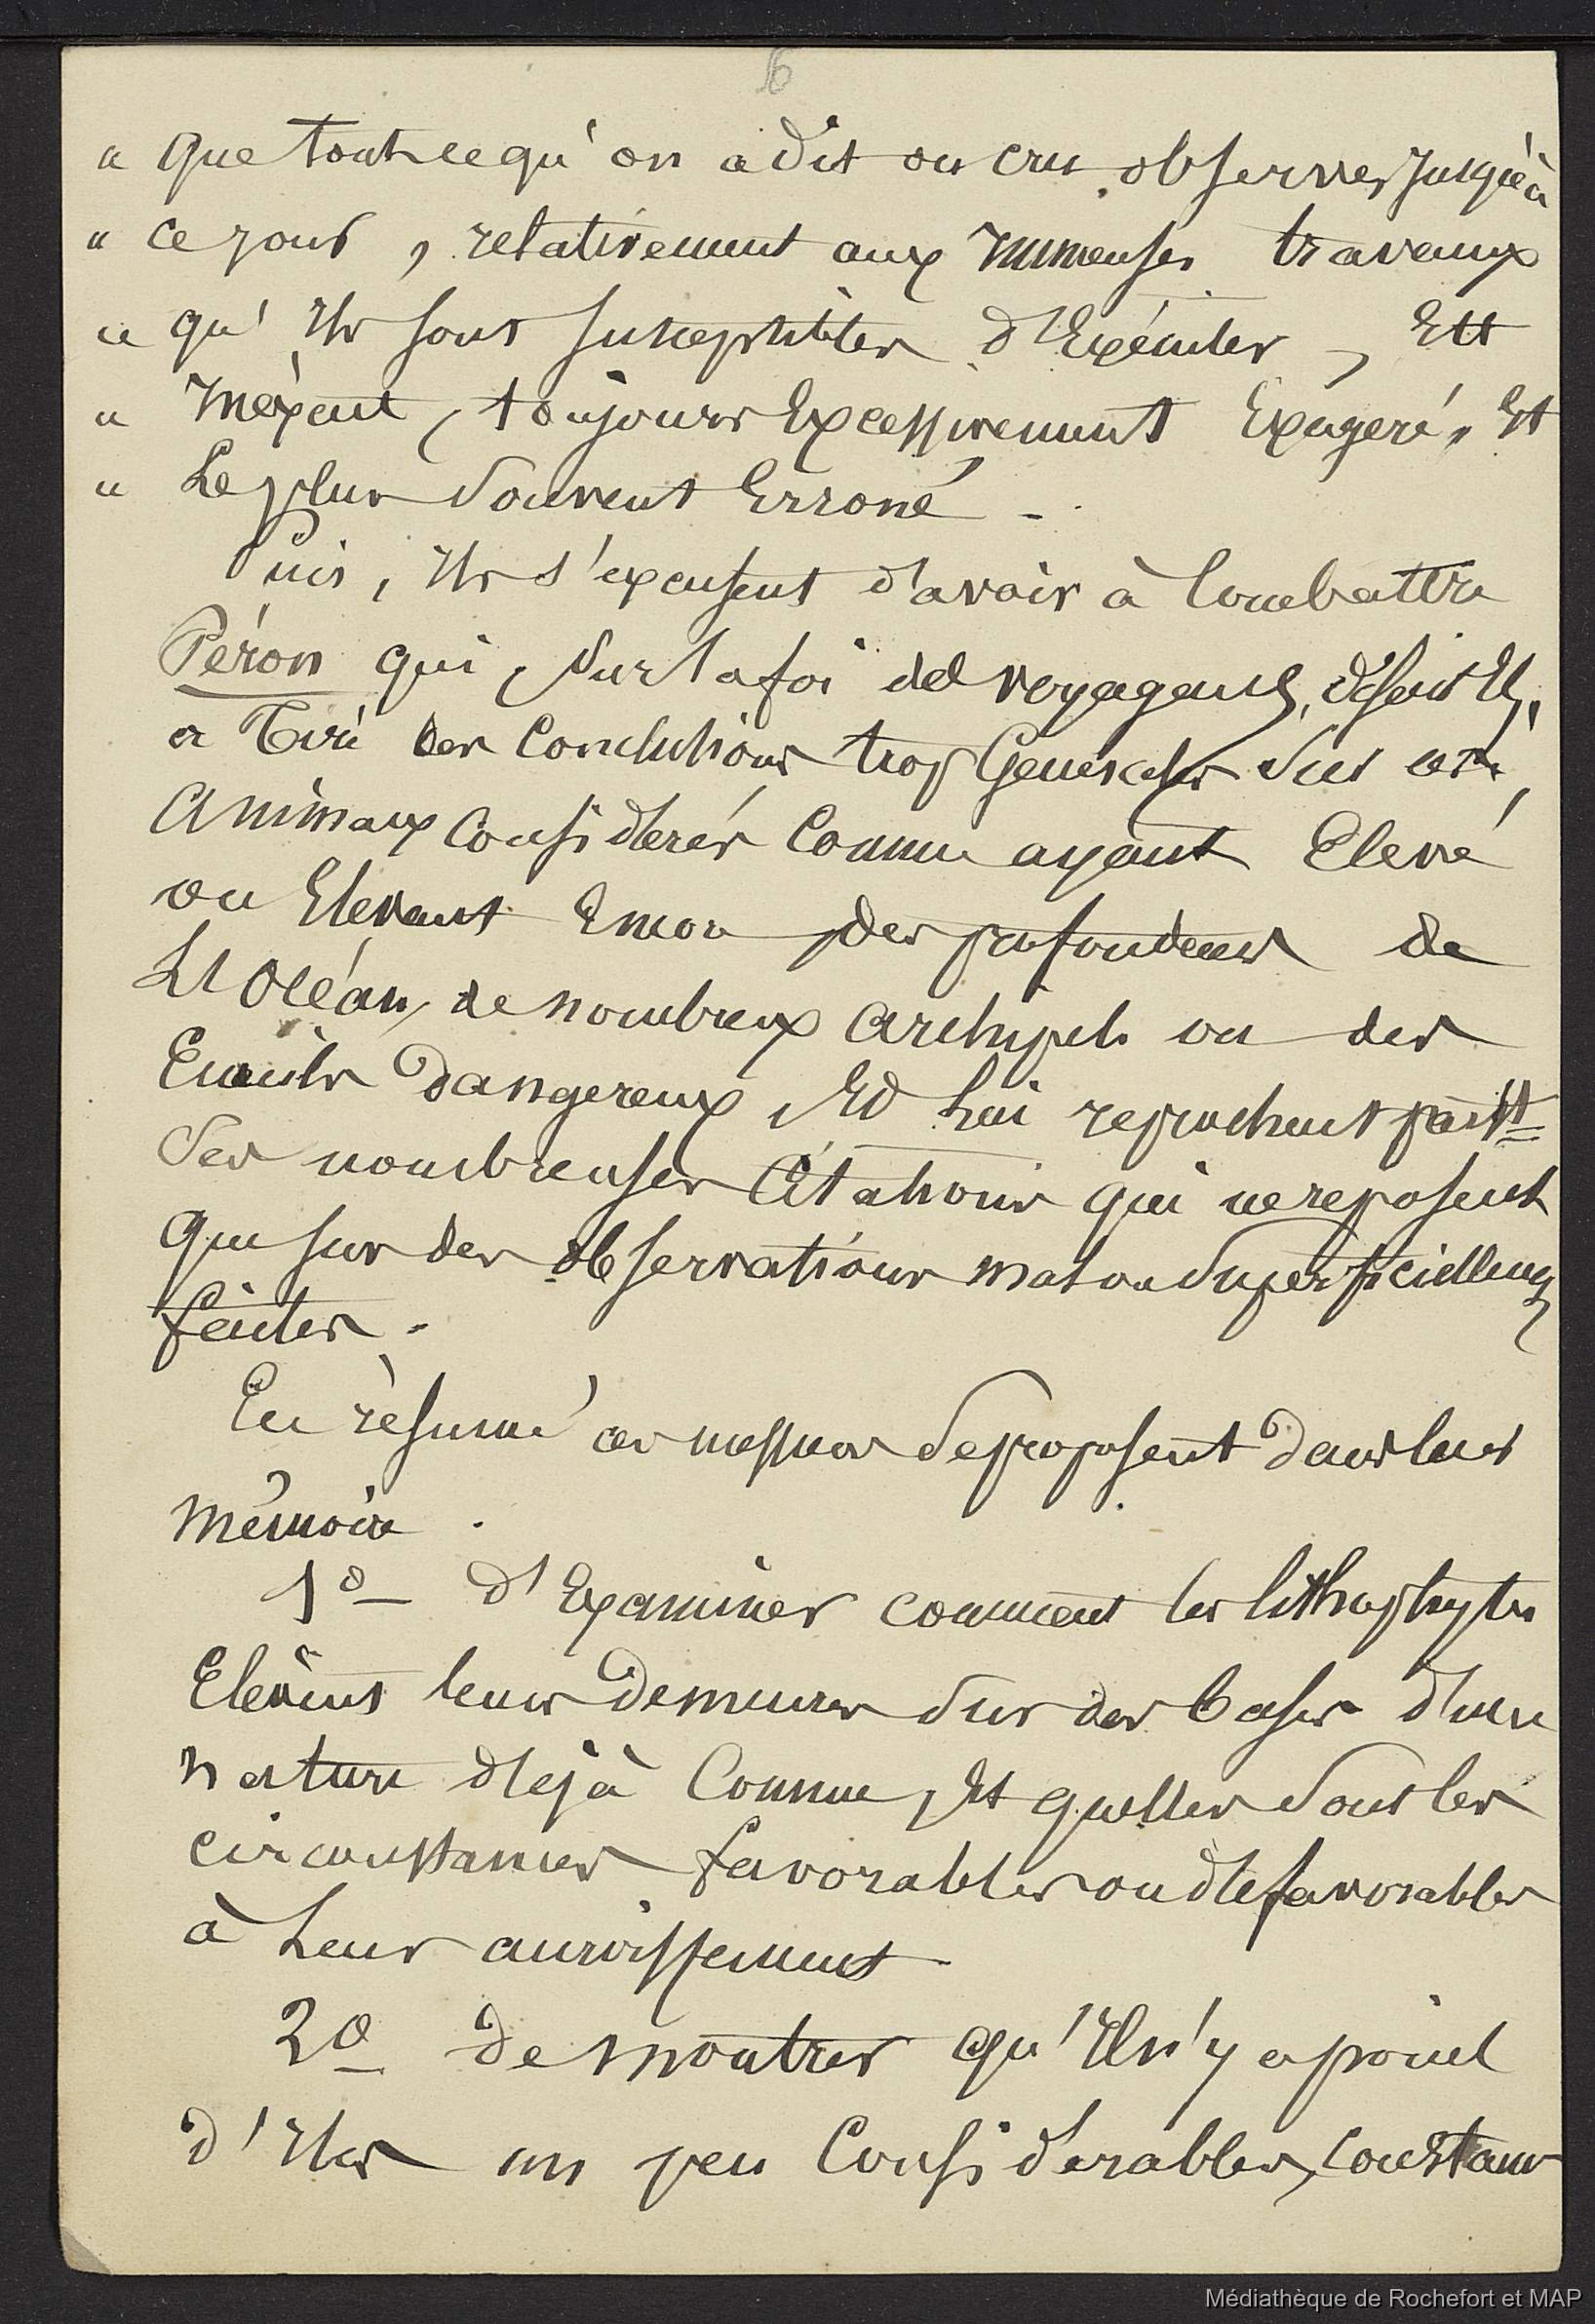 6
" que tout ce qu'on a dit ou cru observer jusqu'à
" ce jour, relativement aux immenses travaux
" qu'ils sont susceptibles d'Exécuter, Est
" inexact, toujours Excessivement Exagéré, Et
" Le plus souvent Erroné -
Puis, ils s'excusent d'avoir à Combattre
Péron qui, sur la foi des voyageurs, disent ils,
a Tiré des Conclusions trop Générales sur ces
Animaux Considérés Comme ayant Elevé
ou Elevant Encore des profondeurs de
L'Océan, de nombreux archipels ou des
Ecueils dangereux, Et Lui reprochent
Ses nombreuses Citations qui ne reposent
que sur des observations mal ou superficiellement
faites.
En résumé ces messieurs se proposent dans leur
mémoire.
1o d'Examiner comment les lithophytes
Elèvent leurs Demeures sur des bases d'une
nature déjà Connue, Et quelles sont les
circonstances favorables ou défavorables
à Leur accroissement
2o de montrer qu'Il n'y a point
d'Iles un peu Considérables, constam
Médiathèque de Rochefort et MAP